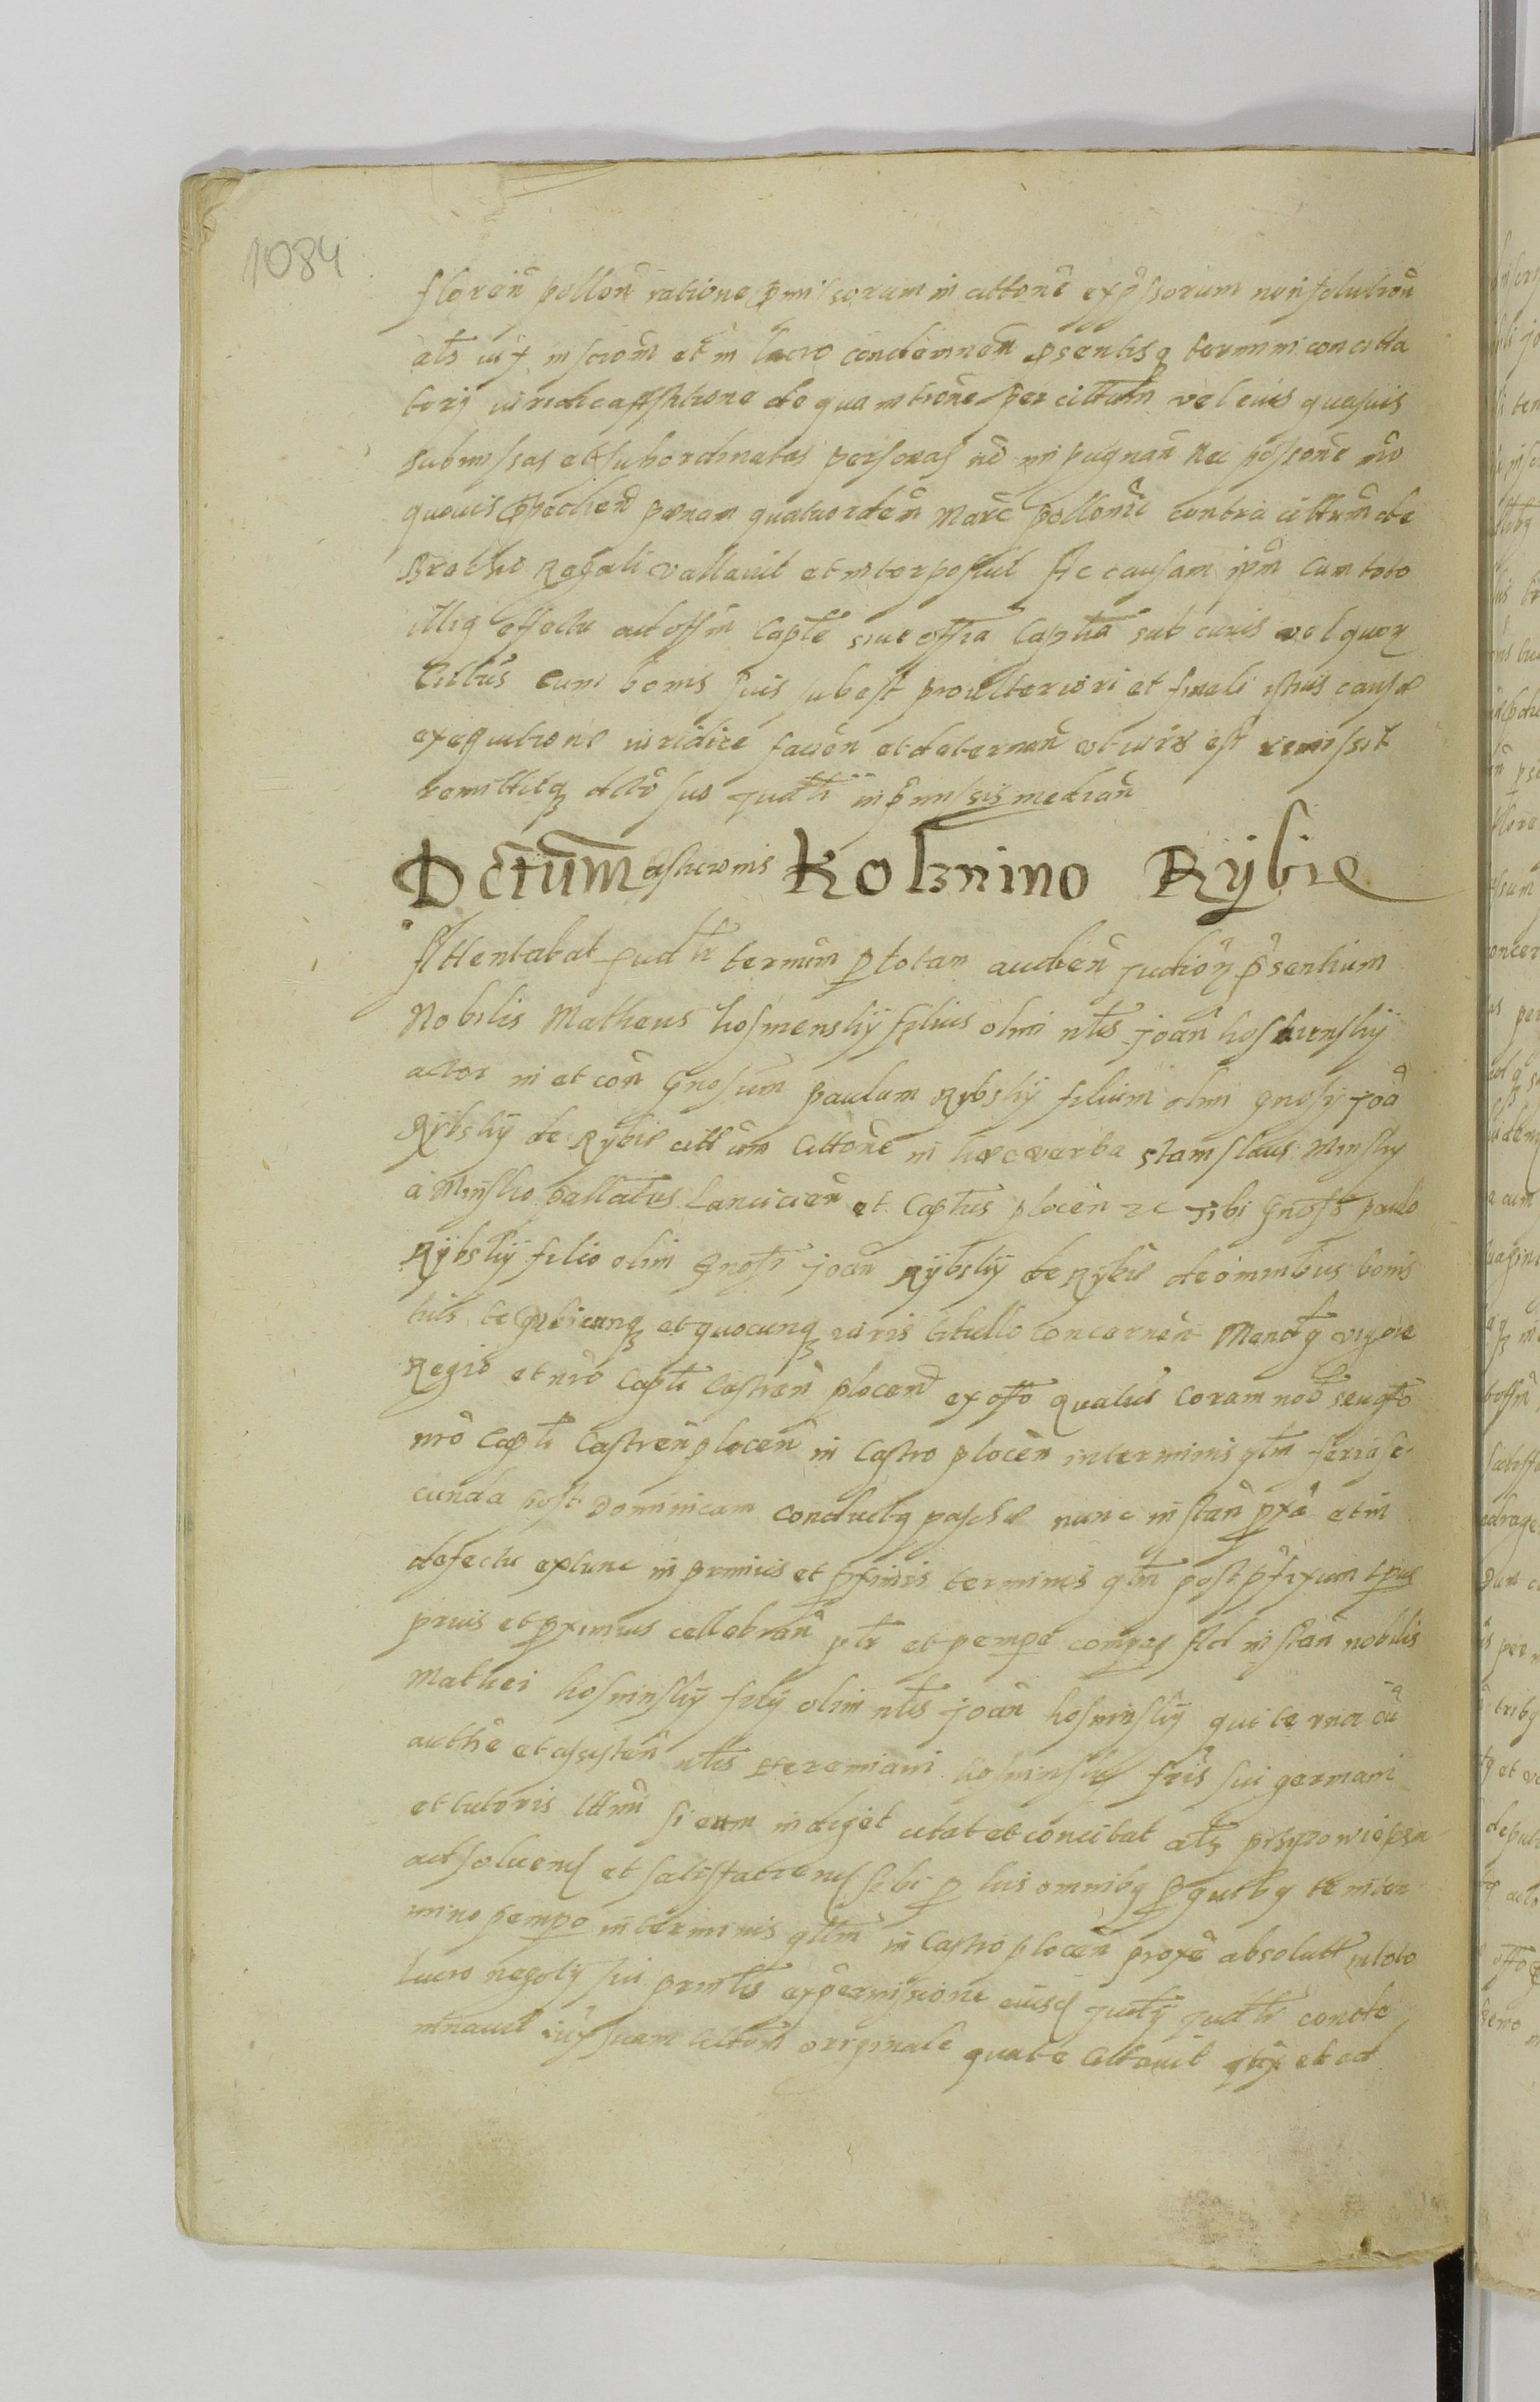 1084
floren pollon ratione pmissorum in cittone expssorum non solution
als iux inscrom et in lucro condemnan psentisq termini concitta
torij iuridica assistione do quam trone per cittatm vel eius quasuis
submissas et subordinatas personas no impugnan nec possone mo
quouis pediend penam quatuordem Marc pollonic contra cittum de
Brachio Regali vallauit et interposuit Ac causam ipm cum toto
illiq effectu ad offm Capte siue offia Captia sub cuius vel quor
Cittus cum bonis suis subest pro ulteriori et finali istius causæ
exequutione iuridice facien et determinan vt iuris est remissit
remittitq dcto suo judtli in pmissis median
Dctum asticionis Kosmino Rÿbie
Attentabat judtli termim p totam audien judior psentium
Nobilis Matheus Kosmenskÿ filius olim nlis joan Kosmenskÿ
actor in et con Gnosum paulum Rybskÿ filium olim gnosi joa
Rÿbskÿ de Rÿbie citt um cittone in hæc verba stanislaus Minsky
à Minsko pallatus Lancicien et Captus plocen zc Tibi Gnoso paulo
Rÿbskÿ filio olim Gnosi joan Rÿbskÿ de Rÿbie de omnibus bonis
tuis te vbicunq et quocunq iuris titullo concernen Mando q vigore
Regio et nro Capti Castren plocen ex offo quatus coram nob seu offo
nro Capti Castren plocen in Castro plocen in terminis qtm feria se-
cunda post Dominicam conductq paschæ nunc instan pxe et in
defectu extunc in primis et pximis terminis qtm post pfixum tpus
prius et pximius cellebran ptr et pempe compas Ad instan nobilis
Mathei Kosminskÿ filÿ olim nlis joan Kosminskÿ qui te vna cu
authe et assisten nlis Heremiani Kosminskÿ fris sui germani
et tutoris ittmi si eum indiget citat et concitat als przÿpowiesza
ad soluend et satisfaciend sibi p his omnibq p quibq te in ter
mino pempo in terminis qttm in Castro plocen proxe absolutt in toto
lucro negotÿ sui prntis ex permissione eiusd judÿ judtli conde
mnauit iux suam cittom originale qua te cittauit qtÿ et ad